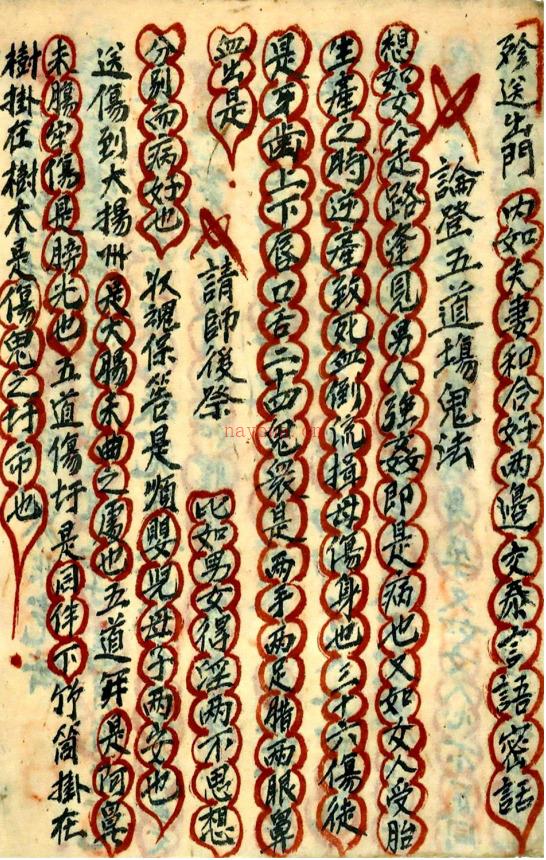 殄送出門 内如夫妻和合好两邊交泰言語密話
論登五道場鬼法
想如女人走路逢見男人強姦即是病也又如女人受胎
生産之時逆産致死血倒流損母傷身也三十六傷徒
是牙歯上下唇口舌二十四鬼衆是两手两足腊两眼鼻
血出是
請師後祭 比如男女得淫两不思想
分別而病好也 收魂保答是煩嬰児母子两安也
送傷到大揚州是大腸木曲之傷也五道奸是阿鼻
未腸守傷是膀光也五道傷圩是同伴下竹筒掛在
樹掛在樹木是傷鬼之圩市也
nayona.cn